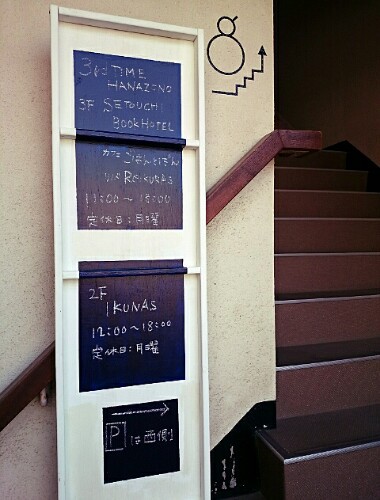 3rd TIME
HANAZONO
3F SETOUCHI
BOOK HOTEL
カフェ ごはんとほん
11:00～18:00
定休日:月曜
2F
IKUNAS
12:00～18:00
定休日:月曜
P は西側